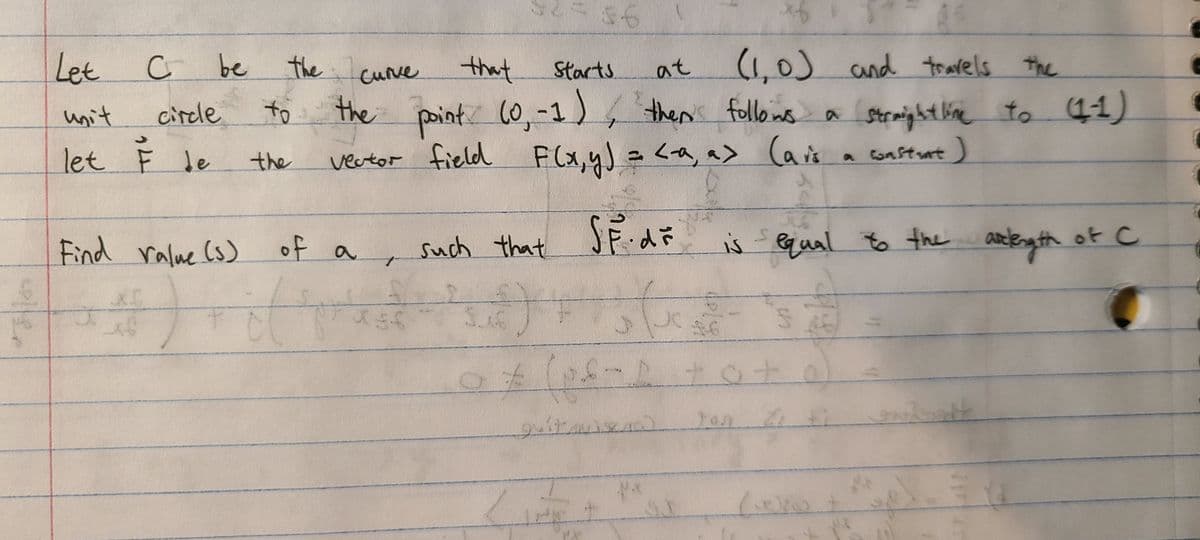 Let C be the curve that starts at (1,0) and travels the
unit circle to the point (0,-1), then follows a straight line to (1-1)
let F⃗ be the vector field F(x,y) = <-a, a> (a is a constant)
Find value(s) of a, such that ∫F⃗·dr⃗ is equal to the arclength of C